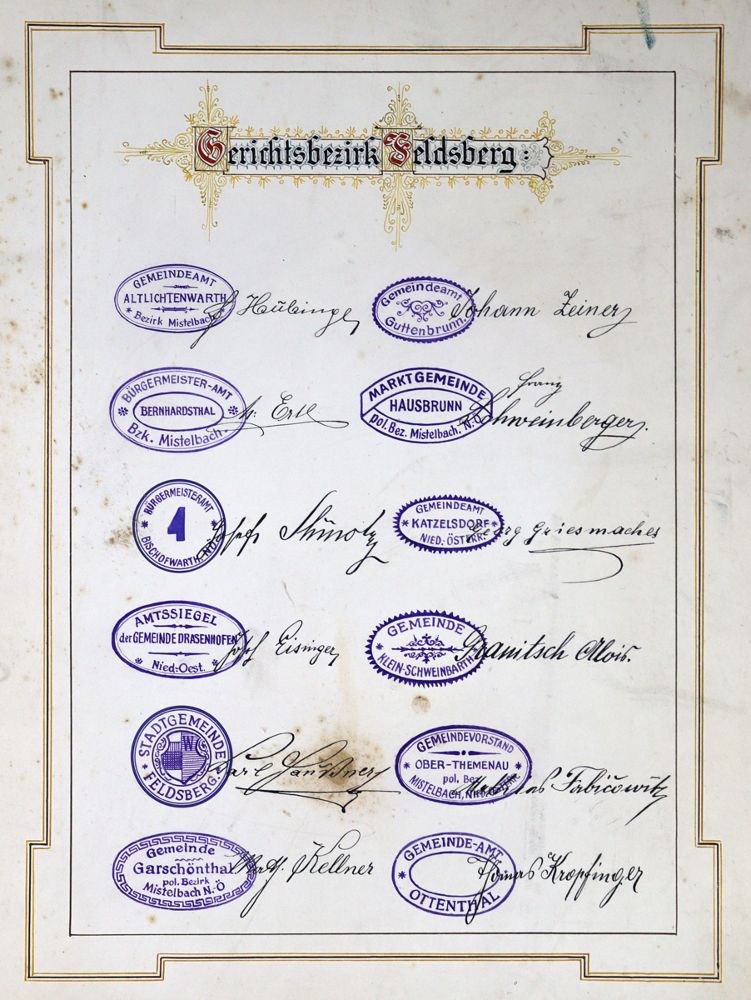 Gerichtsbezirk Feldsberg:
GEMEINDEAMT
ALTLICHTENWARTH
* Bezirk Mistelbach *
Hübinger
Gemeindeamt
Guttenbrunn.
Johann Zeiner
BÜRGERMEISTER-AMT
BERNHARDSTHAL
Bzk. Mistelbach.
MARKTGEMEINDE
HAUSBRUNN
pol. Bez. Mistelbach. N.Ö.
Franz
Schweinberger.
BÜRGERMEISTERAMT
1
BISCHOFWARTH, N.Ö.
Josef
GEMEINDEAMT
* KATZELSDORF *
NIED.-ÖSTERR.
Georg Griesmacher
AMTSSIEGEL
der GEMEINDE DRASENHOFEN
* Nied-Oest. *
Josef Eisinger
GEMEINDE
* KLEIN-SCHWEINBARTH *
Granitsch Alois.
* STADTGEMEINDE *
W
FELDSBERG.
Karl
GEMEINDEVORSTAND
* OBER-THEMENAU *
pol. Bez.
MISTELBACH,
Gemeinde
Garschönthal
pol. Bezirk
Mistelbach N.Ö
Math. Kellner
* GEMEINDE-AMT *
OTTENTHAL
Kropfinger